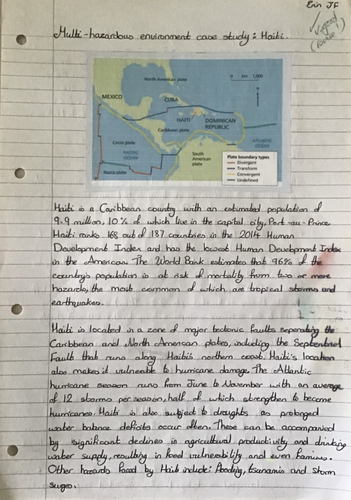 Erin JF
Multi-hazardous environment case study: Haiti.
North American plate
0 km 1,000
MEXICO
CUBA
HAITI
DOMINICAN
REPUBLIC
Cocos plate
Caribbean plate
ATLANTIC
OCEAN
PACIFIC
OCEAN
South
American
plate
Nazca plate
Plate boundary types
Divergent
Transform
Convergent
Undefined
Haiti is a Caribbean country with an estimated population of
9.9 million, 10% of which live in the capital city, Port-au-Prince
Haiti ranks 168 out of 187 countries in the 2014 Human
Development Index and has the lowest Human Development Index
in the Americas. The World Bank estimates that 96% of the
country's population is at risk of mortality from two or more
hazards, the most common of which are tropical storms and
earthquakes.
Haiti is located in a zone of major tectonic faults separating the
Caribbean and North American plates, including the Septentrional
Fault that runs along Haiti's northern coast. Haiti's location
also makes it vulnerable to hurricane damage. The Atlantic
hurricane season runs from June to November with an average
of 12 storms per season, half of which strengthen to become
hurricanes. Haiti is also subject to droughts as prolonged
water balance deficits occur often. These can be accompanied
by significant declines in agricultural productivity and drinking
water supply, resulting in food vulnerability and even famine.
Other hazards faced by Haiti include: flooding, tsunamis and storm
surges.